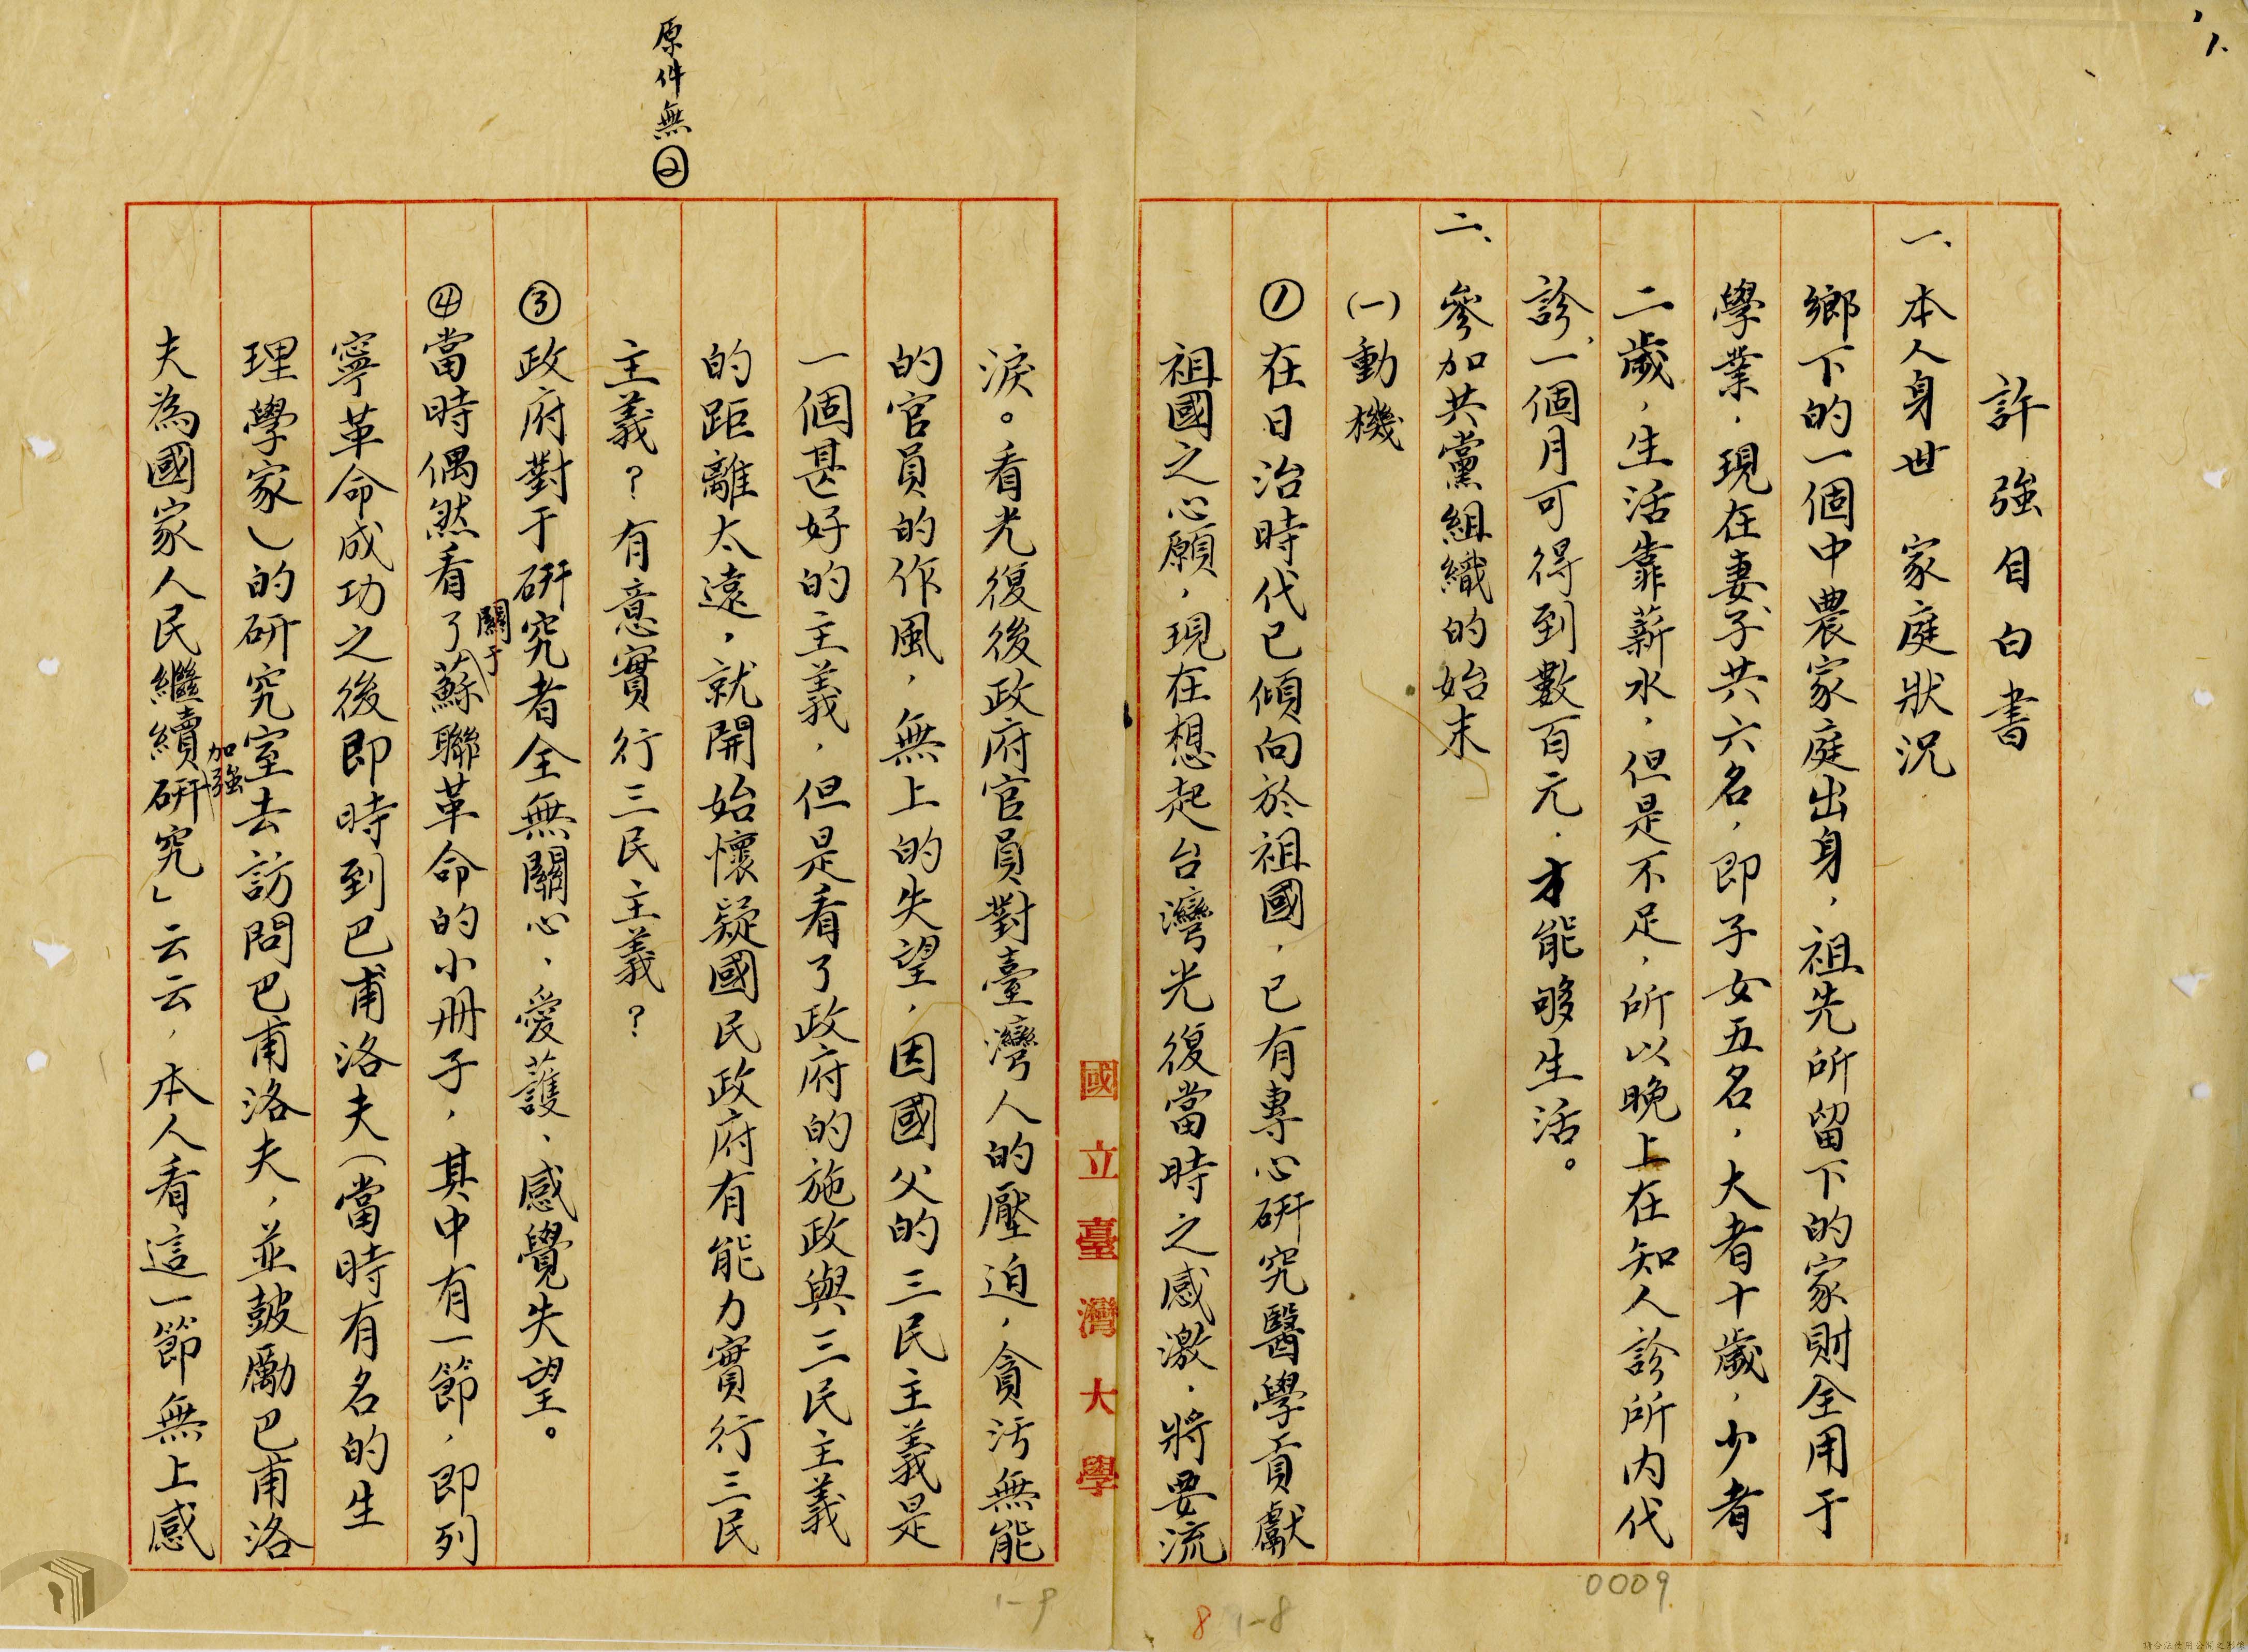 1.
許強自白書
一、本人身世 家庭狀況
鄉下的一個中農家庭出身，祖先所留下的家財全用于
學業，現在妻子共六名，即子女五名，大者十歲，少者
二歲，生活靠薪水，但是不足，所以晚上在知人診所內代
診，一個月可得到數百元，才能够生活。
二、參加共黨組織的始末
(一)動機
①在日治時代已傾向於祖國，已有專心研究醫學貢獻
祖國之心願，現在想起台灣光復當時之感激，將要流
國立臺灣大學
淚。看光復後政府官員對臺灣人的壓迫，貪污無能
的官員的作風，無上的失望，因國父的三民主義是
一個甚好的主義，但是看了政府的施政與三民主義
的距離太遠，就開始懷疑國民政府有能力實行三民
主義？有意實行三民主義？
原件無②
③政府對于研究者全無關心、愛護、感覺失望。
④當時偶然看了關于蘇聯革命的小冊子，其中有一節，即列
寧革命成功之後即時到巴甫洛夫(當時有名的生
理學家)的研究室去訪問巴甫洛夫，並鼓勵巴甫洛
夫為國家人民繼續加強研究」云云，本人看這一節無上感
0009
8 1-8
1-9
請合法使用公開之影像